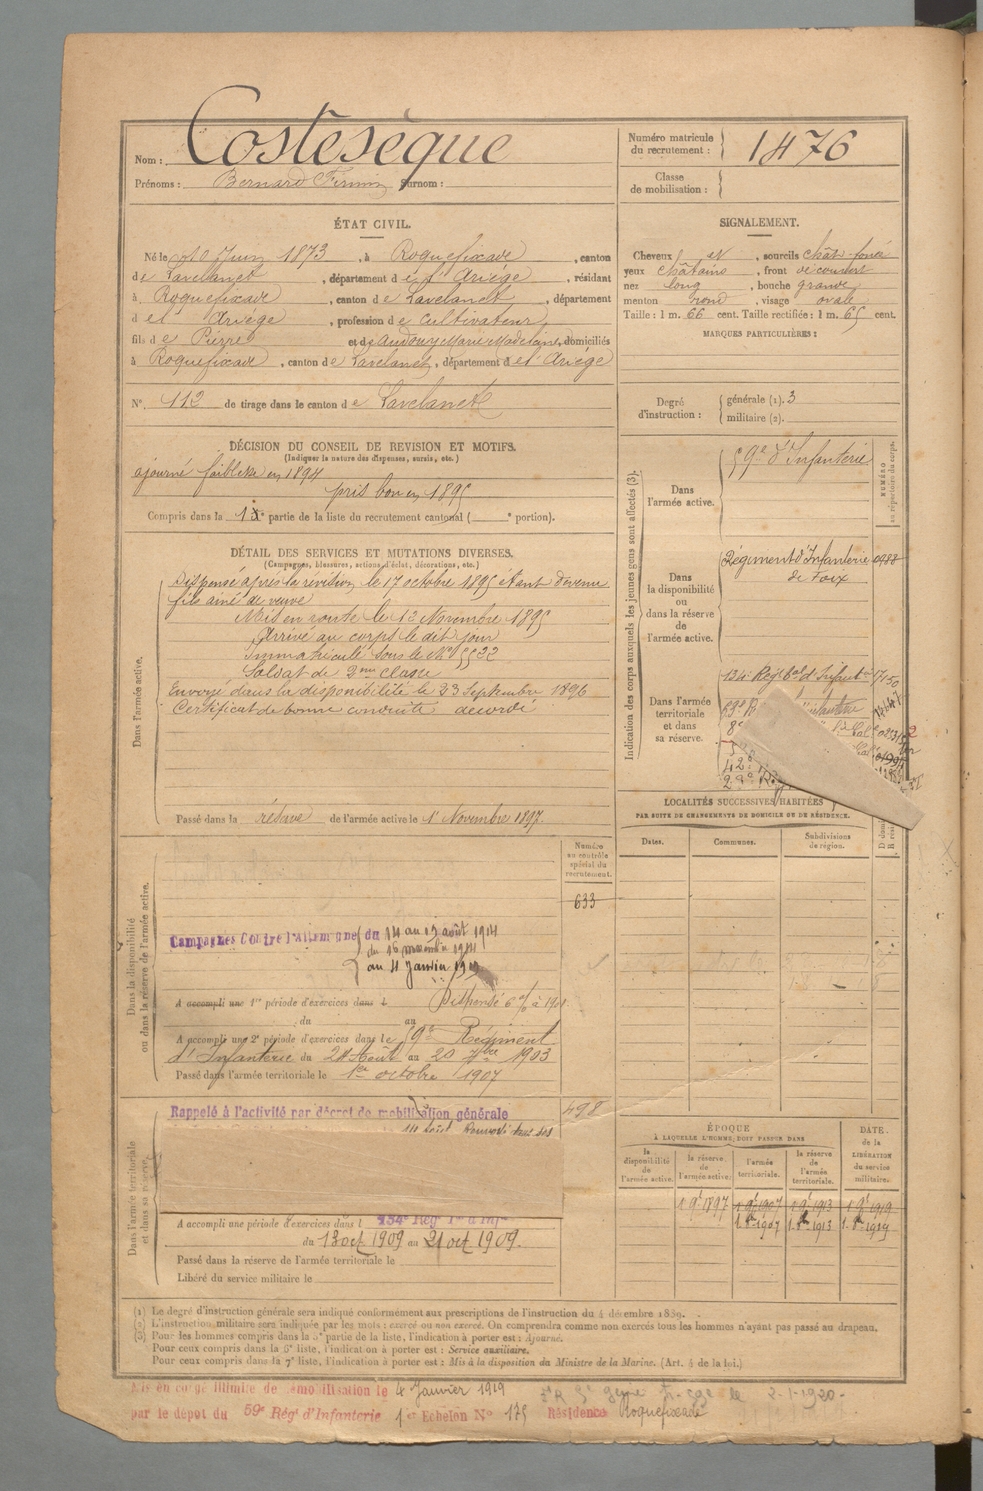 Nom : Costesèque
Prénoms : Bernard Firmin Surnom :
Numéro matricule du recrutement : 1476
Classe de mobilisation :
ÉTAT CIVIL.
Né le 10 Juin 1873, à Roquefixade, canton
de Lavelanet, département de l'Ariège, résidant
à Roquefixade, canton de Lavelanet, département
de l' Ariège, profession de Cultivateur
fils de Pierre et de Audouy Marie Madelaine, domiciliés
à Roquefixade, canton de Lavelanet, département de l'Ariège
N° 112 de tirage dans le canton de Lavelanet
SIGNALEMENT.
Cheveux et, sourcils chât. foncé
yeux châtains, front découvert
nez long, bouche grande
menton rond, visage ovale
Taille : 1 m. 66 cent. Taille rectifiée : 1 m. 65 cent.
MARQUES PARTICULIÈRES :
Degré d'instruction : générale (1). 3
militaire (2).
DÉCISION DU CONSEIL DE REVISION ET MOTIFS.
(Indiquer la nature des dispenses, sursis, etc.)
ajourné faiblesse en 1894
pris bon en 1895
Compris dans la 1e partie de la liste du recrutement cantonal ( e portion).
DÉTAIL DES SERVICES ET MUTATIONS DIVERSES.
(Campagnes, blessures, actions d'éclat, décorations, etc.)
Dans l'armée active.
Dispensé après la révision le 17 octobre 1895 étant devenu
fils ainé de veuve
Mis en route le 12 Novembre 1895
Arrivé au corps le dit jour
Immatriculé sous le N° 5532
Soldat de 2me classe
Envoyé dans la disponibilité le 23 Septembre 1896
Certificat de bonne conduite accordé
Passé dans la réserve de l'armée active le 1er Novembre 1897.
Indication des corps auxquels les jeunes gens sont affectés (3).
NUMÉRO au répertoire du corps.
Dans l'armée active.
59e d'Infanterie
Dans la disponibilité ou dans la réserve de l'armée active.
Régiment d'Infanterie 0988
de Foix
Dans l'armée territoriale et dans sa réserve.
134e Régt tal d'Infant 17150
LOCALITÉS SUCCESSIVES HABITÉES
PAR SUITE DE CHANGEMENTS DE DOMICILE OU DE RÉSIDENCE.
Dates. Communes. Subdivisions de région.
Dans la disponibilité ou dans la réserve de l'armée active.
Numéro au contrôle spécial du recrutement.
633
Campagnes Contre l'Allemagne du 14 au 19 août 1914
du 16 novembre 1914
au 4 Janvier 1919
A accompli une 1re période d'exercices dans l Dispensé
du au
A accompli une 2e période d'exercices dans le 59e Régiment
d'Infanterie du 24 Août au 20 7bre 1903
Passé dans l'armée territoriale le 1er octobre 1907
Dans l'armée territoriale et dans sa réserve.
Rappelé à l'activité par décret de mobilisation générale
498
A accompli une période d'exercices dans l 134e Régt
du 13 oct 1909 au 21 oct 1909.
Passé dans la réserve de l'armée territoriale le
Libéré du service militaire le
ÉPOQUE
À LAQUELLE L'HOMME DOIT PASSER DANS
DATE de la LIBÉRATION du service militaire.
la disponibilité de l'armée active. la réserve de l'armée active. l'armée territoriale. la réserve de l'armée territoriale.
1 9e 1897 1 9e 1907 1 9e 1913 1 9e 1919
(1) Le degré d'instruction générale sera indiqué conformément aux prescriptions de l'instruction du 4 décembre 1889.
(2) L'instruction militaire sera indiquée par les mots : exercé ou non exercé. On comprendra comme non exercés tous les hommes n'ayant pas passé au drapeau.
(3) Pour les hommes compris dans la 5e partie de la liste, l'indication à porter est : Ajourné.
Pour ceux compris dans la 6e liste, l'indication à porter est : Service auxiliaire.
Pour ceux compris dans la 7e liste, l'indication à porter est : Mis à la disposition du Ministre de la Marine. (Art. 4 de la loi.)
Mis en congé illimité de démobilisation le 4 Janvier 1919
par le dépôt du 59e Régt d'Infanterie 1er Echelon N° 175 Résidence Roquefixade